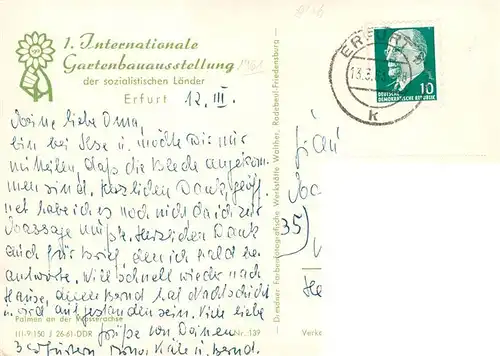 1. Internationale
Gartenbauausstellung 1961
der sozialistischen Länder
Erfurt 12. III.
Meine liebe Oma,
bin bei Ilse u. möchte Dir nur
mitteilen, daß die Kleider angekom-
men sind. Herzlichen Dank, geöff-
net habe ich es noch nicht da ich zur
Massage mußte. Herzlichen Dank
auch für Brief, den ich bald be
antworte. Will schnell wieder nach
Hause, denn Bernd hat Nachtschicht
u. wird aufgestanden sein. Viele liebe
Grüße von Deinen
Käte u. Bernd.
Palmen an der Wasserachse
III-9-150 J 26-61-DDR
Nr. 139
Dresdner Farbenfotografische Werkstätte Walther, Radebeul-Friedensburg
ERFURT
13.3.
k
10
DEUTSCHE
DEMOKRATISCHE REPUBLIK
Frau
35)
Verka